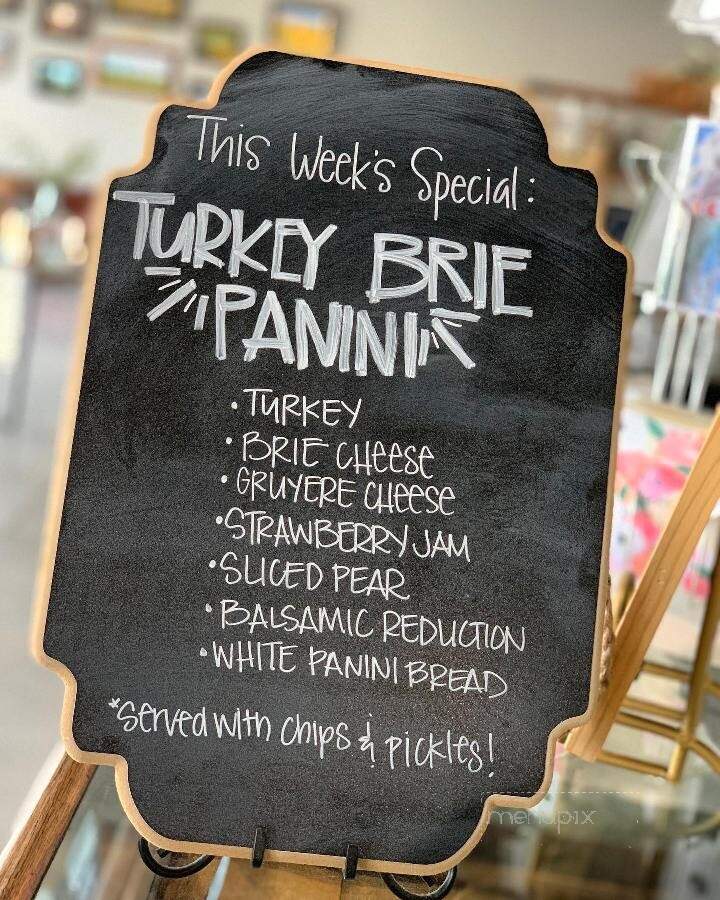 This Week's Special:
TURKEY BRIE
PANINI
• TURKEY
• BRIE CHEESE
• GRUYERE CHEESE
• STRAWBERRY JAM
• SLICED PEAR
• BALSAMIC REDUCTION
• WHITE PANINI BREAD
*served with chips & pickles!
menupix